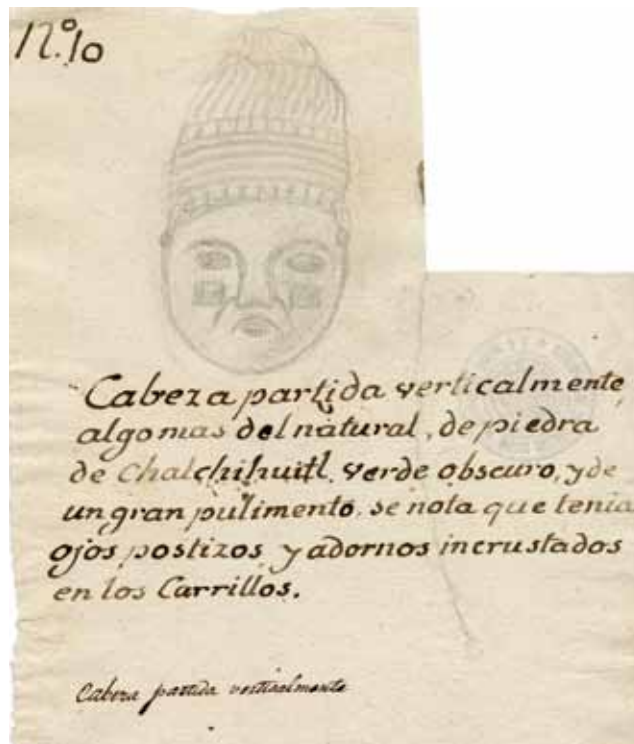 N.º 10
Cabeza partida verticalmente,
algo mas del natural, de piedra
de Chalchihuitl, verde obscuro, y de
un gran pulimento. se nota que tenia
ojos postizos y adornos incrustados
en los Carrillos.
Cabeza partida verticalmente